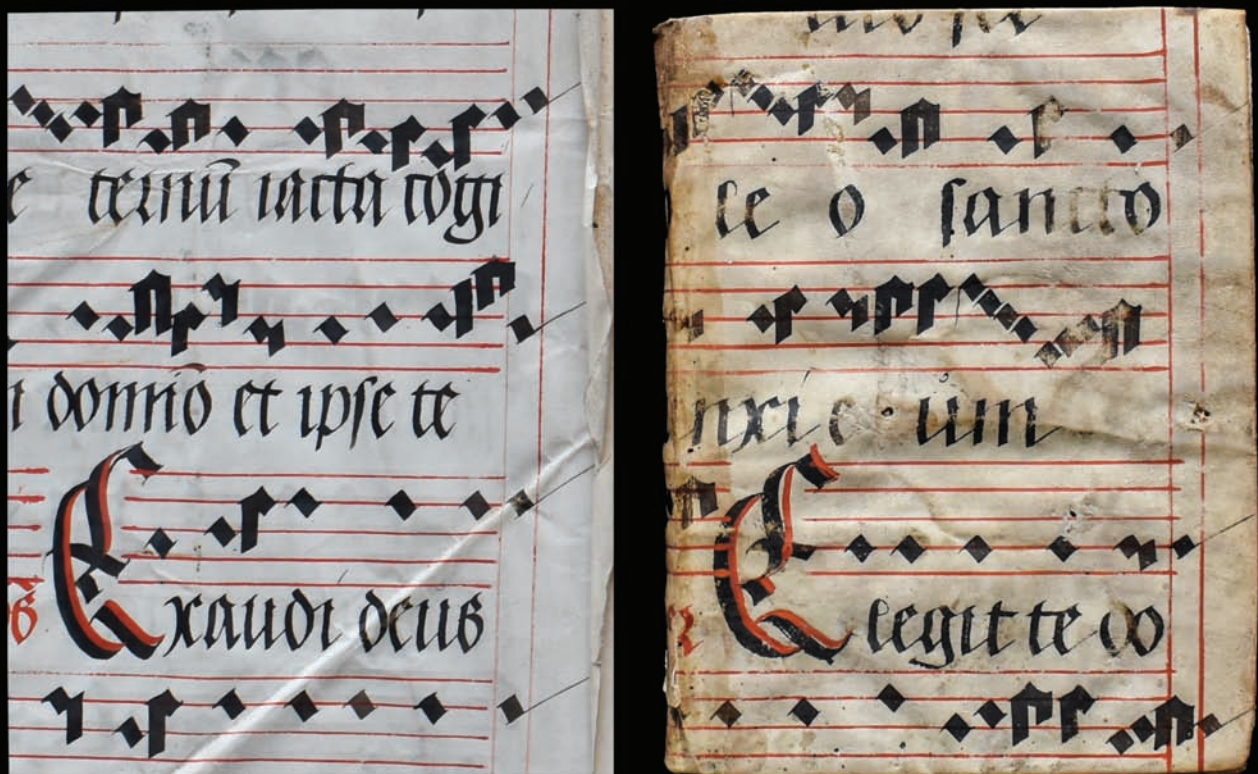 e ternū iacta cogi
domīo et ipse te
Exaudi deus
le o sancto
nxi e um
Elegit te do